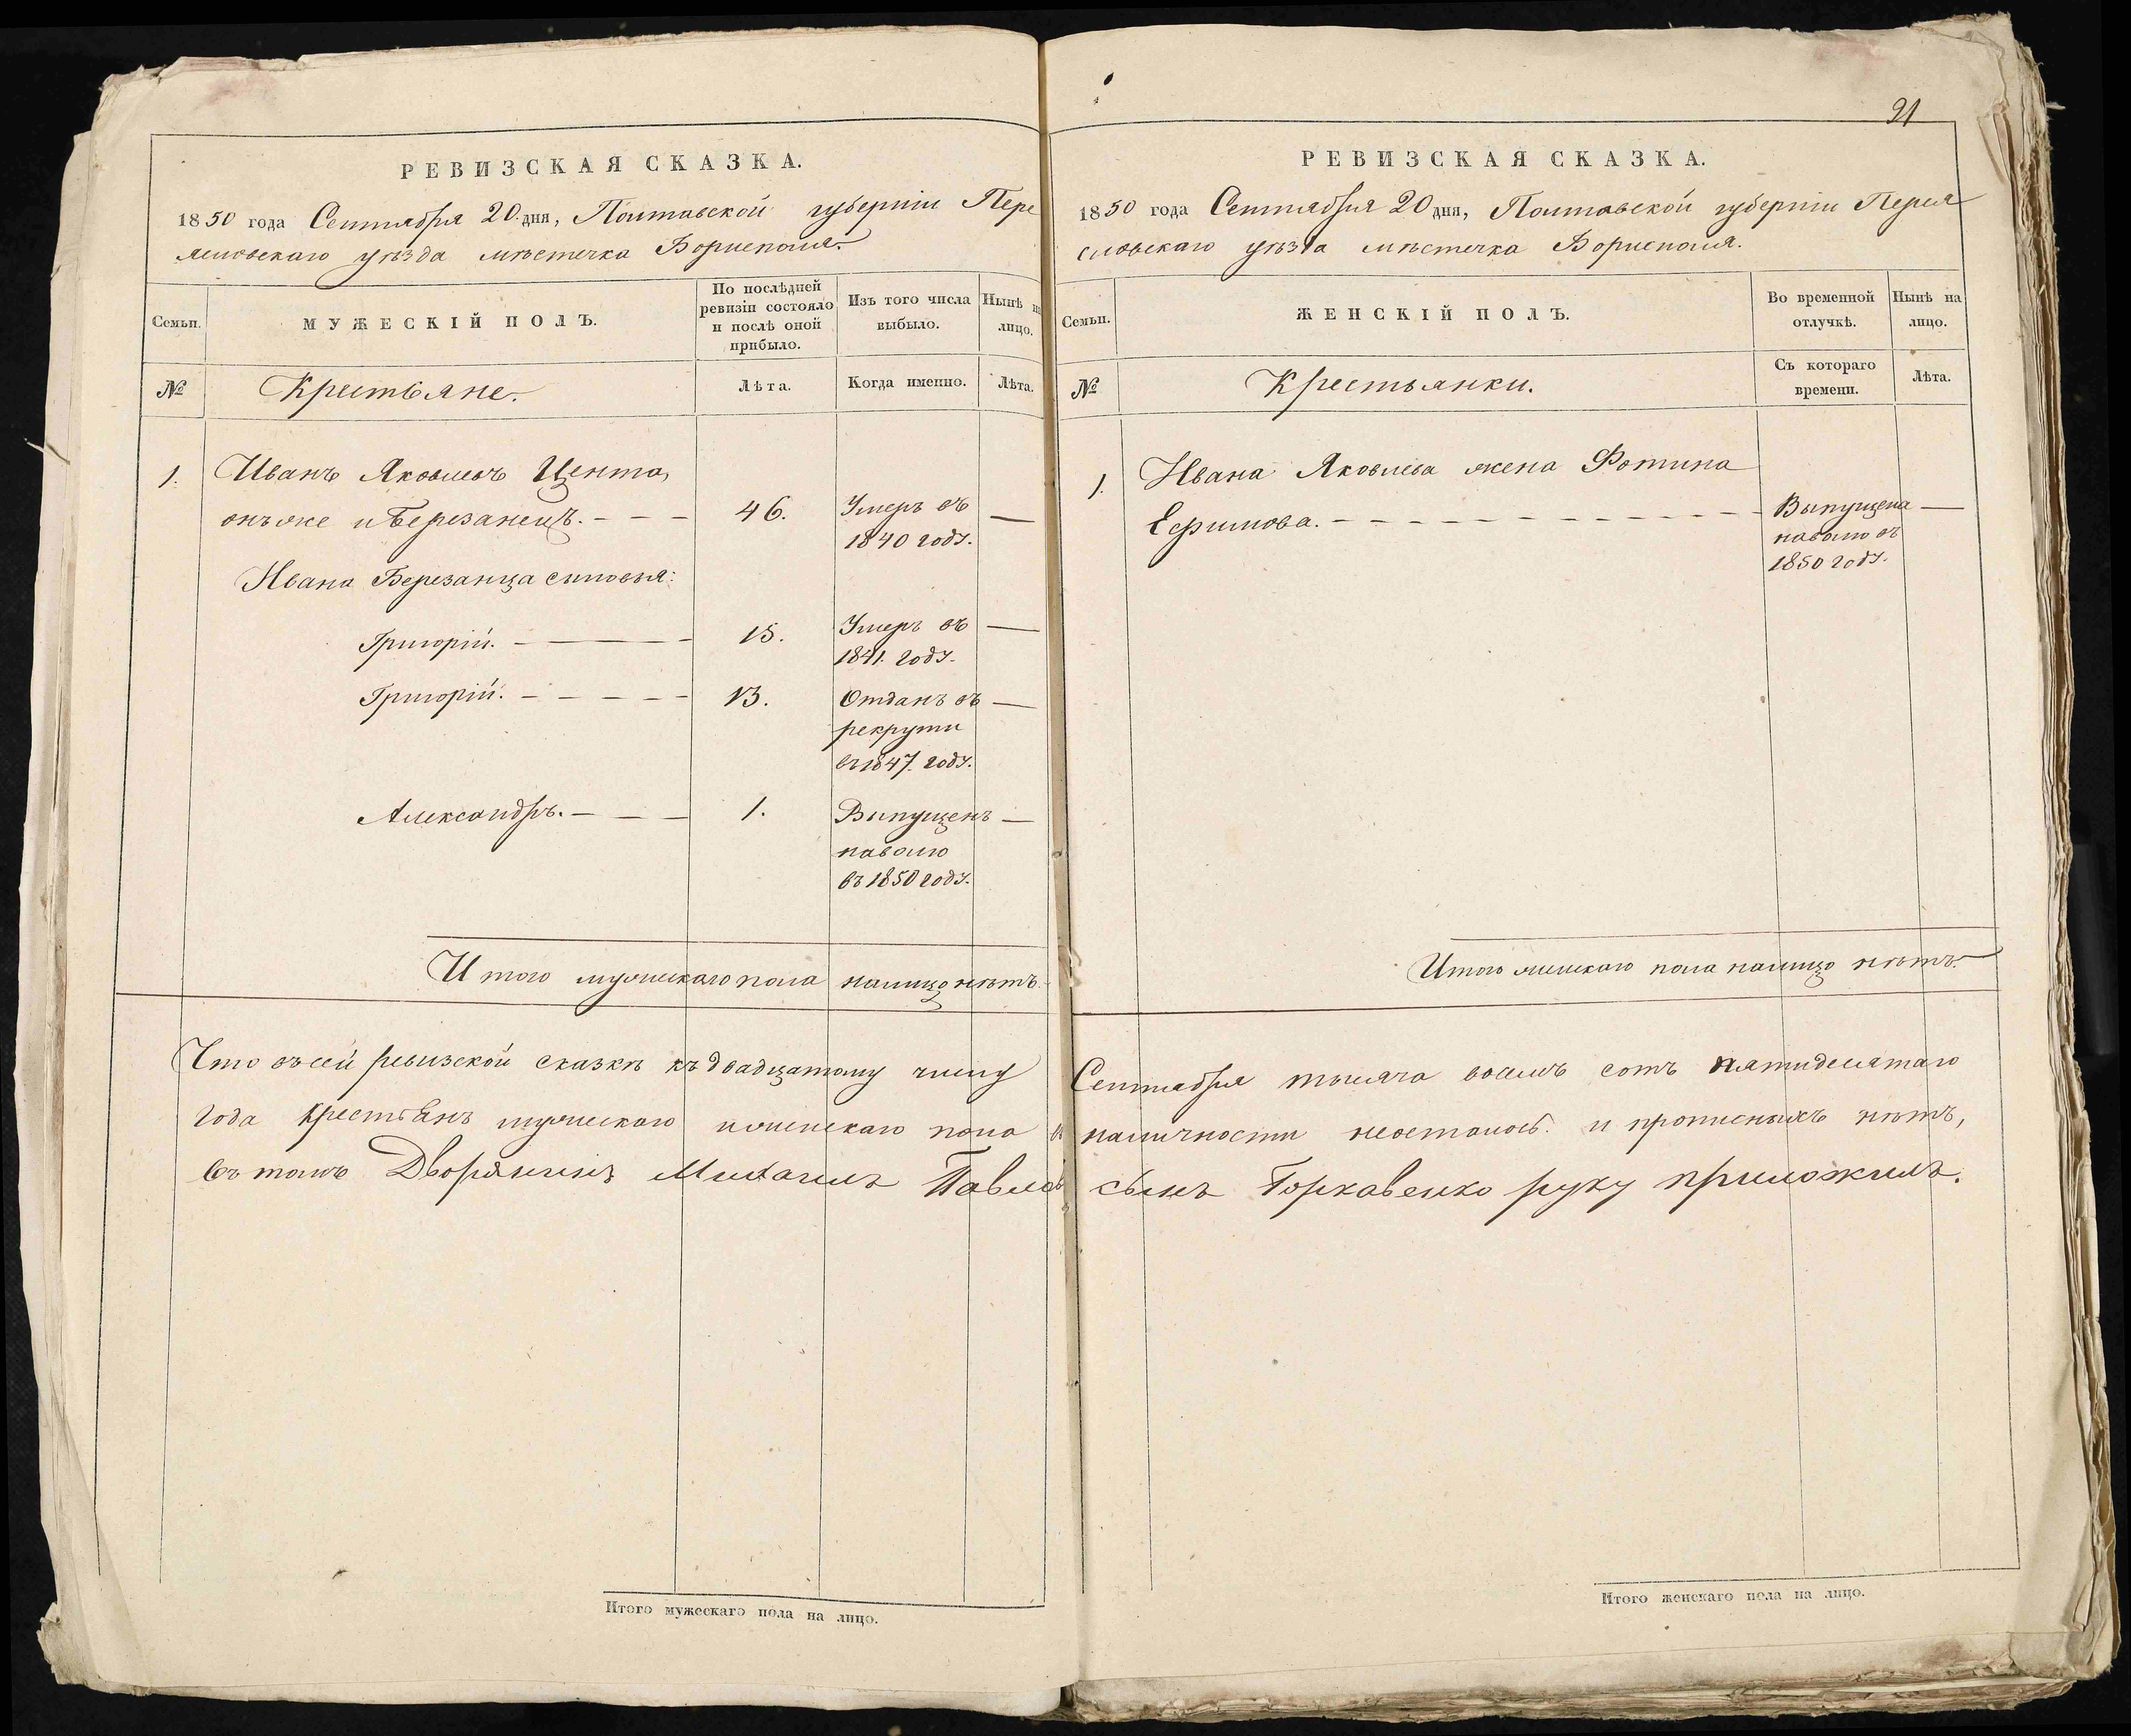 РЕВИЗСКАЯ СКАЗКА.
1850 года Сентября 20 дня, Полтавской губерніи Пере
яславскаго уѣзда мѣстечка Борисполя.
Семьи.
МУЖЕСКІЙ ПОЛЪ.
По послѣдней ревизіи состояло и послѣ оной прибыло.
Изъ того числа выбыло.
Нынѣ на лицо.
№
Крестьяне.
Лѣта.
Когда именно.
Лѣта.
1. Иванъ Яковлевъ Цента,
онъ же и Березанецъ. — — — 46. Умеръ въ —
1840 году.
Ивана Березанца сыновья:
Григорій. — — — 15. Умеръ въ —
1841. году.
Григорій. — — — — — 13. Отданъ въ —
рекруты
въ 1847. году.
Александръ. — — — 1. Выпущенъ —
наволю
въ 1850 году.
Итого мужескаго пола налицо нѣтъ.
Что въ сей ревизской сказкѣ къ двадцатому числу
года крестьянъ мужескаго и женскаго пола въ
въ томъ Дворянинъ Михаилъ Павловъ
Итого мужескаго пола на лицо.
21
РЕВИЗСКАЯ СКАЗКА.
1850 года Сентября 20 дня, Полтавской губерніи Перея
славскаго уѣзда мѣстечка Борисполя.
Семьи.
ЖЕНСКІЙ ПОЛЪ.
Во временной отлучкѣ.
Нынѣ на лицо.
№
Крестьянки.
Съ котораго времени.
Лѣта.
1. Ивана Яковлева жена Фотина
Ефимова. — — — — — — — — — — Выпущена —
наволю въ
1850 году.
Итого женскаго пола налицо нѣтъ.
Сентября тысяча восемь сотъ пятидесятаго
наличности неосталось. и прописныхъ нѣтъ,
сынъ Горкавенко руку приложилъ.
Итого женскаго пола на лицо.